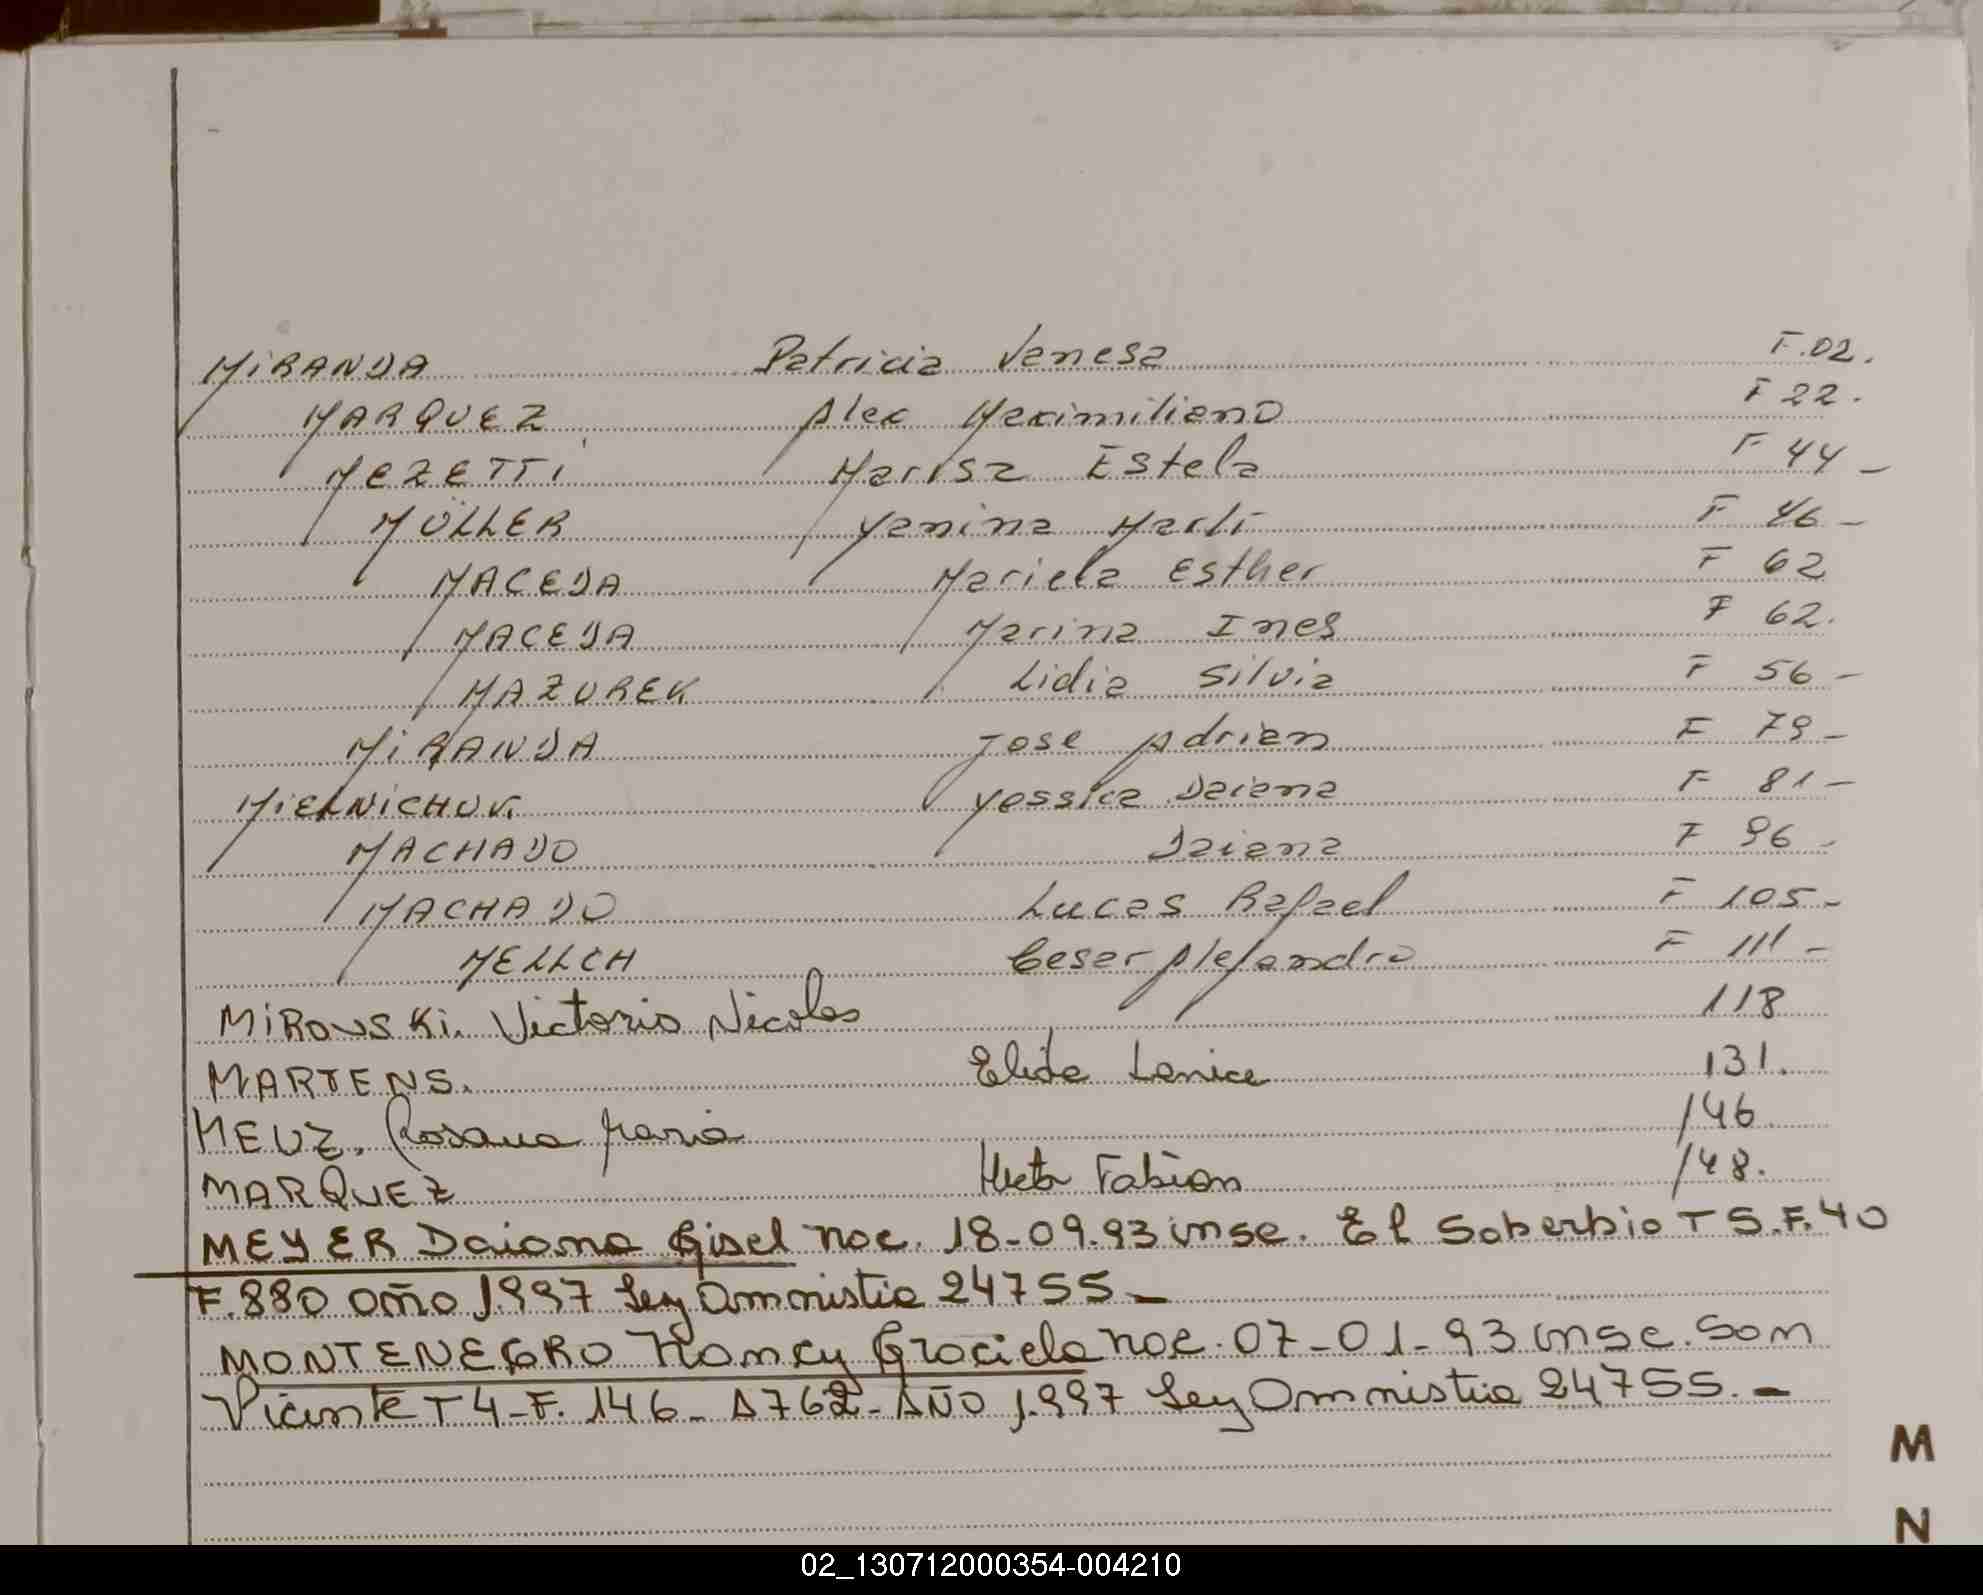 MIRANDA Patricia Vanesa F.02.
MARQUEZ Alex Maximiliano F 22.
MEZETTI Marisa Estela F 44-
MÜLLER Yanina Marli F 46-
MACEDA Mariela Esther F 62
MACEDA Marina Ines F 62.
MAZUREK Lidia Silvia F 56-
MIRANDA Jose Adrian F 79-
MIELNICHUK. Yessica Daiana F 81-
MACHADO Daiana F 96-
MACHADO Lucas Rafael F 105-
MELLCH Cesar Alejandro F 111-
MIROVSKI. Victorio Nicolas 118
MARTENS. Elida Lenice 131.
MEUZ. Rosana Maria 146
MARQUEZ Fabian 148.
MEYER Daiana Gisel nac. 18-09.93 insc. El Soberbio T 5.F.40
F.880 año 1.997 Ley Amnistia 24755-
MONTENEGRO Nancy Graciela nac. 07-01-93 insc. San
Vicente T 4-F. 146- A762- AÑO 1.997 Ley Amnistia 24755.-
M
N
02_130712000354-004210